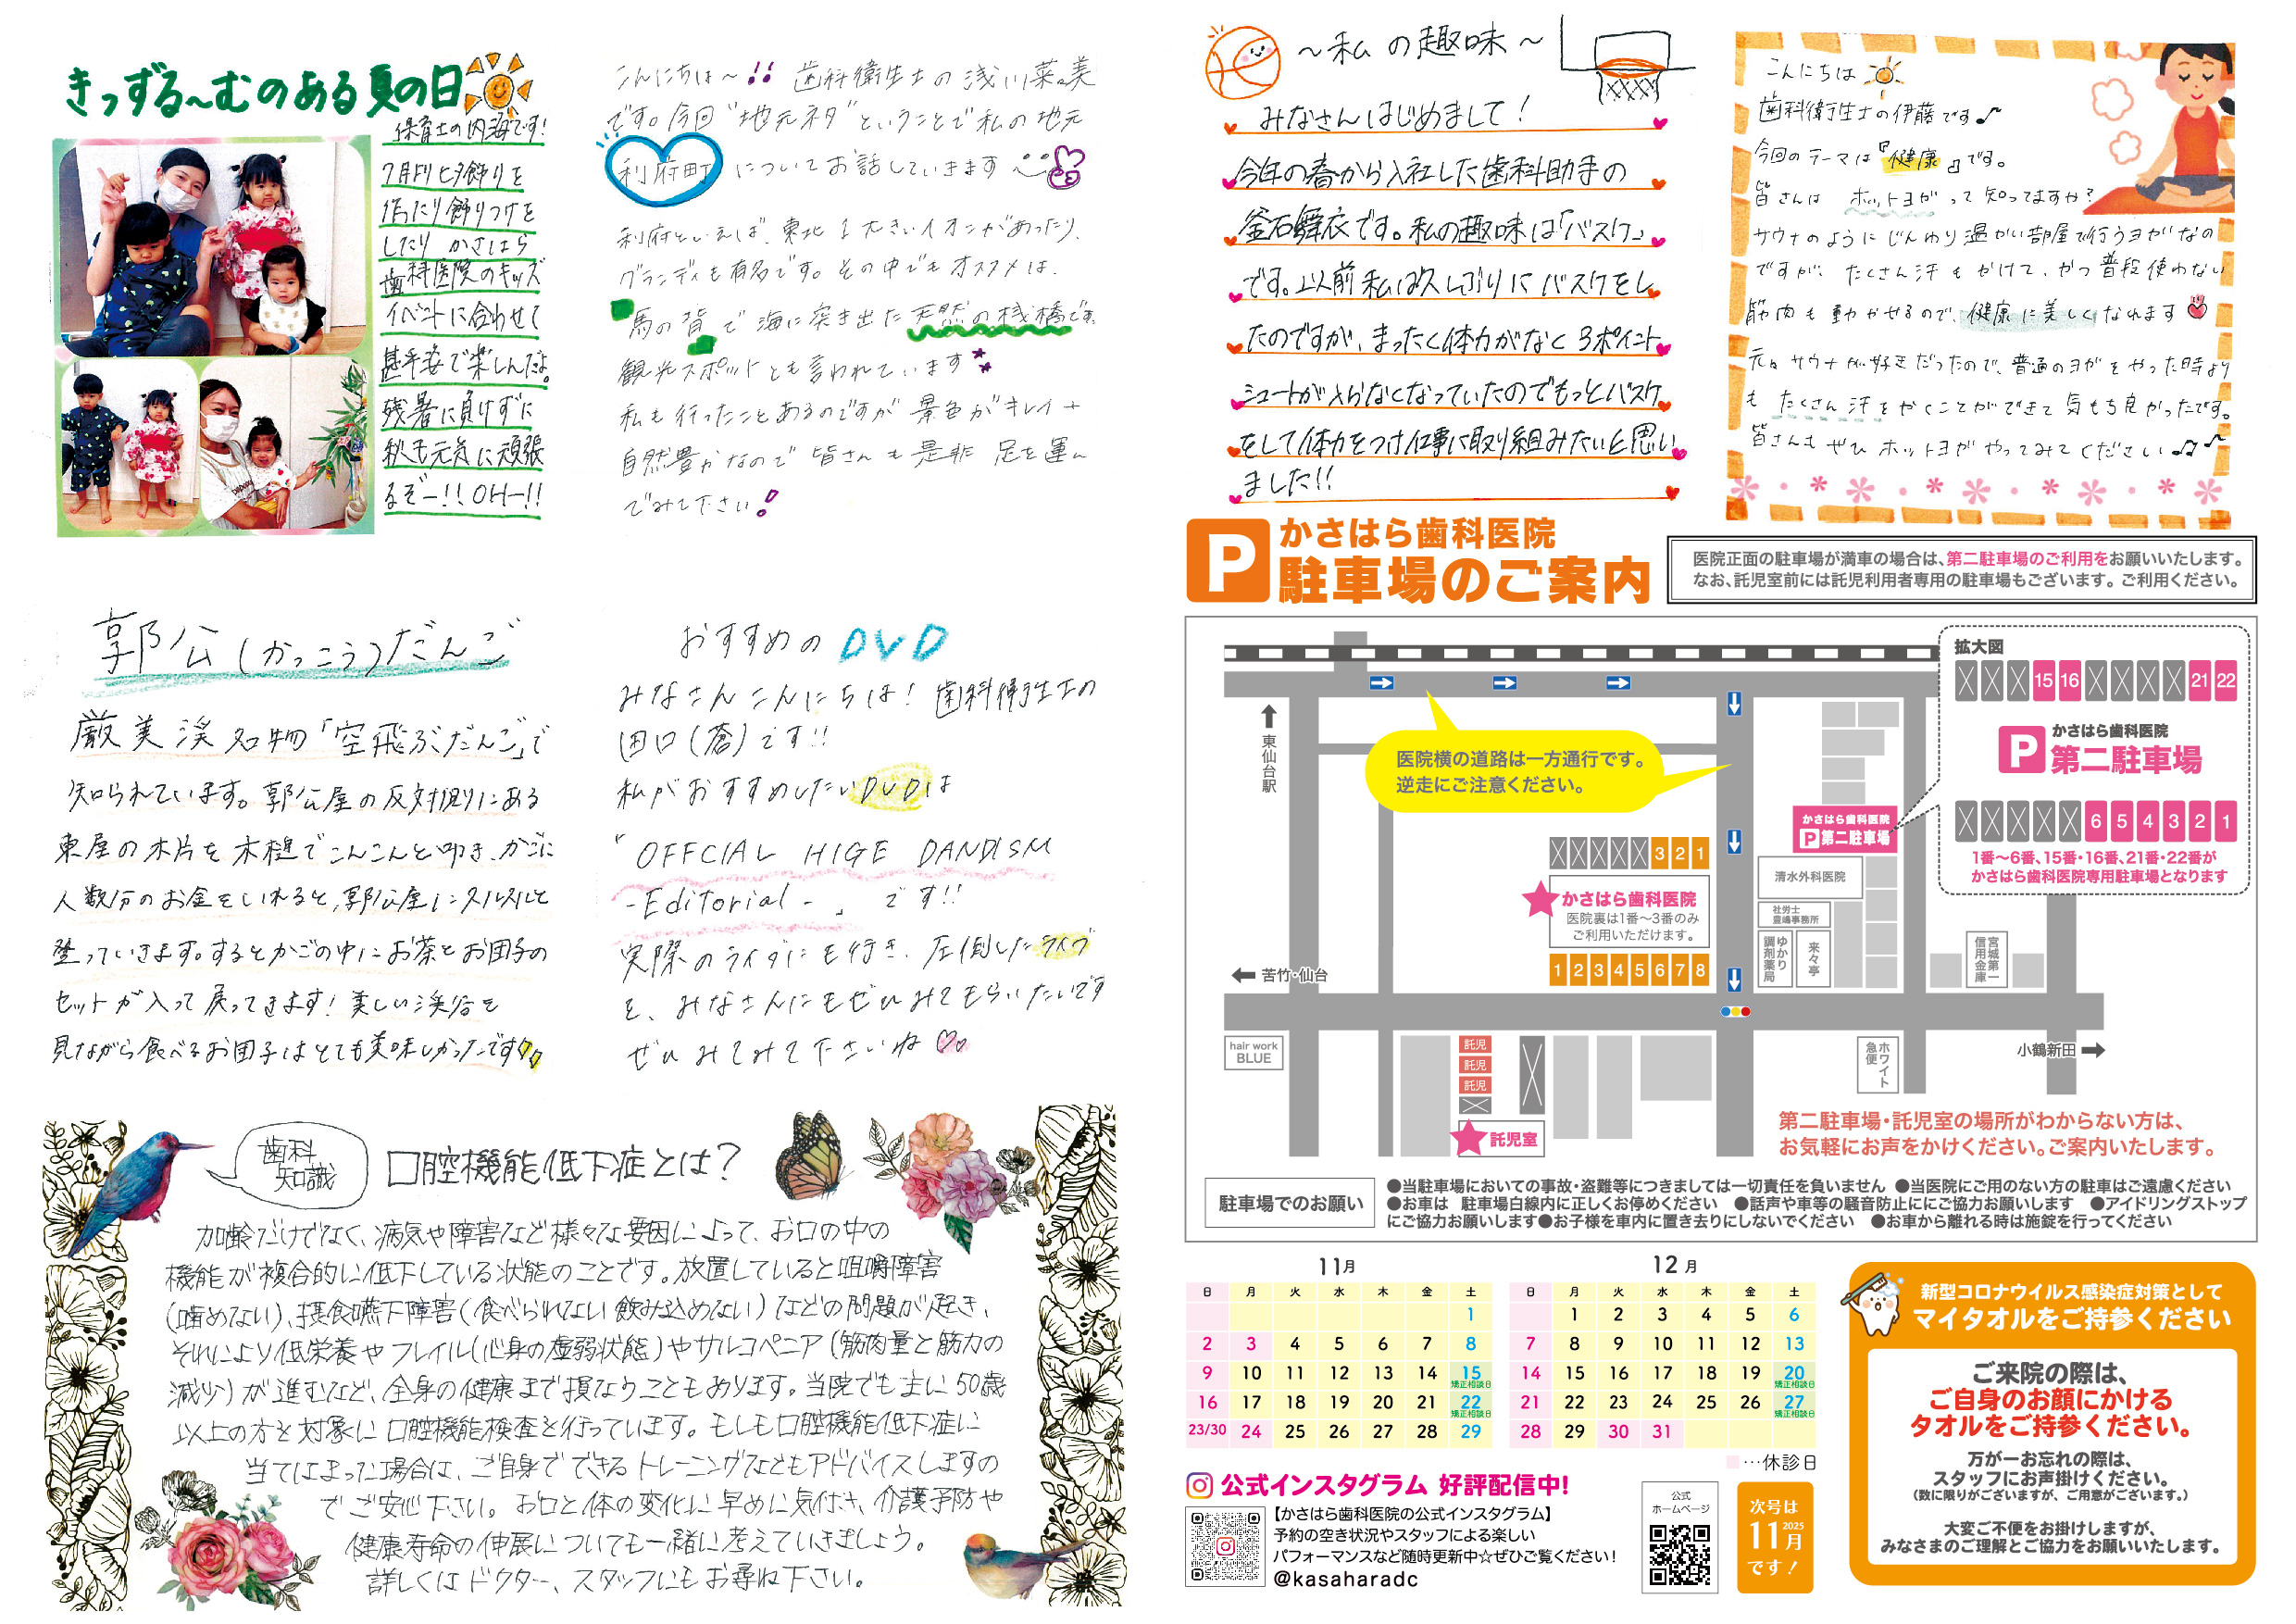 きっずる~むのある夏の日
保育士の内海です!
7月より七夕飾りを
作ったり飾りつけを
したり かさはら
歯科医院のキッズ
イベントに合わせて
甚平姿で楽しんだよ。
残暑に負けずに
秋も元気に頑張
るぞー!!OH-!!
こんにちは~!! 歯科衛生士の浅川菜美
です。今回“地元ネタ”ということで私の地元
利府町 についてお話していきます
利府といえば、東北1大きいイオンがあったり、
グランディも有名です。その中でもオススメは、
馬の背で 海に突き出た天然の桟橋で
観光スポットとも言われています
私も行ったことあるのですが 景色がキレイ+
自然豊かなので 皆さんも是非 足を運ん
でみて下さい!
郭公(かっこう)だんご
厳美渓名物「空飛ぶだんご」で
知られています。郭公屋の反対側にある
東屋の木片を木槌でこんこんと叩き、かごに
人数分のお金をいれると、郭公屋にスルスルと
登っていきます。するとかごの中にお茶とお団子の
セットが入って戻ってきます!美しい渓谷を
見ながら食べるお団子はとても美味しかったです
おすすめのDVD
みなさんこんにちは! 歯科衛生士の
田口(蒼)です!!
私がおすすめしたいDVDは
『OFFCIAL HIGE DANDISM
-Editorial-』です!!
実際のライブにも行き、圧倒したライブ
を、みなさんにもぜひみてもらいたいです
ぜひみてみて下さいね
歯科
知識
口腔機能低下症とは?
加齢だけでなく、病気や障害など様々な要因によって、お口の中の
機能が複合的に低下している状態のことです。放置していると咀嚼障害
(噛めない)、摂食嚥下障害(食べられない飲み込めない)などの問題が起き、
それにより低栄養やフレイル(心身の虚弱状態)やサルコペニア(筋肉量と筋力の
減少)が進むなど、全身の健康まで損なうこともあります。当院でも主に50歳
以上の方を対象に口腔機能検査を行っています。もしも口腔機能低下症に
当てはまった場合は、ご自身でできるトレーニングなどもアドバイスしますの
でご安心下さい。お口と体の変化に早めに気付き、介護予防や
健康寿命の伸展についても一緒に考えていきましょう。
詳しくはドクター、スタッフにもお尋ね下さい。
~私の趣味~
みなさんはじめまして!
今年の春から入社した歯科助手の
釜石舞衣です。私の趣味は「バスケ」
です。以前私は久しぶりにバスケをし
たのですが、まったく体力がなく3ポイント
シュートが入らなくなっていたのでもっとバスケ
をして体力をつけ仕事に取り組みたいと思い
ました!!
こんにちは
歯科衛生士の伊藤です♪
今回のテーマは『健康』です。
皆さんは ホットヨガって知ってますか?
サウナのように じんわり温かい部屋で行うヨガなの
ですが、たくさん汗もかけて、かつ普段使わない
筋肉も動かせるので、健康に美しくなれます
元々サウナが好きだったので、普通のヨガをやった時より
も たくさん汗をかくことができて気もち良かったです。
皆さんも ぜひ ホットヨガ やってみてください♪
P かさはら歯科医院
駐車場のご案内
医院正面の駐車場が満車の場合は、第二駐車場のご利用をお願いいたします。
なお、託児室前には託児利用者専用の駐車場もございます。ご利用ください。
東仙台駅
医院横の道路は一方通行です。
逆走にご注意ください。
拡大図
15 16 21 22
P かさはら歯科医院
第二駐車場
6 5 4 3 2 1
1番~6番、15番・16番、21番・22番が
かさはら歯科医院専用駐車場となります
かさはら歯科医院
P第二駐車場
清水外科医院
社労士
豊嶋事務所
ゆかり調剤薬局
来々亭
宮城第一信用金庫
3 2 1
かさはら歯科医院
医院裏は1番~3番のみ
ご利用いただけます。
1 2 3 4 5 6 7 8
苦竹・仙台
hair work
BLUE
託児
託児
託児
託児室
ホワイト急便
小鶴新田
第二駐車場・託児室の場所がわからない方は、
お気軽にお声をかけください。ご案内いたします。
駐車場でのお願い
●当駐車場においての事故・盗難等につきましては一切責任を負いません ●当医院にご用のない方の駐車はご遠慮ください
●お車は 駐車場白線内に正しくお停めください ●話声や車等の騒音防止ににご協力お願いします ●アイドリングストップ
にご協力お願いします●お子様を車内に置き去りにしないでください ●お車から離れる時は施錠を行ってください
11月
日 月 火 水 木 金 土
1
2 3 4 5 6 7 8
9 10 11 12 13 14 15 矯正相談日
16 17 18 19 20 21 22 矯正相談日
23/30 24 25 26 27 28 29
12月
日 月 火 水 木 金 土
1 2 3 4 5 6
7 8 9 10 11 12 13
14 15 16 17 18 19 20 矯正相談日
21 22 23 24 25 26 27 矯正相談日
28 29 30 31
…休診日
公式インスタグラム 好評配信中!
【かさはら歯科医院の公式インスタグラム】
予約の空き状況やスタッフによる楽しい
パフォーマンスなど随時更新中☆ぜひご覧ください!
@kasaharadc
公式
ホームページ
次号は
2025
11月
です!
新型コロナウイルス感染症対策として
マイタオルをご持参ください
ご来院の際は、
ご自身のお顔にかける
タオルをご持参ください。
万が一お忘れの際は、
スタッフにお声掛けください。
(数に限りがございますが、ご用意がございます。)
大変ご不便をお掛けしますが、
みなさまのご理解とご協力をお願いいたします。